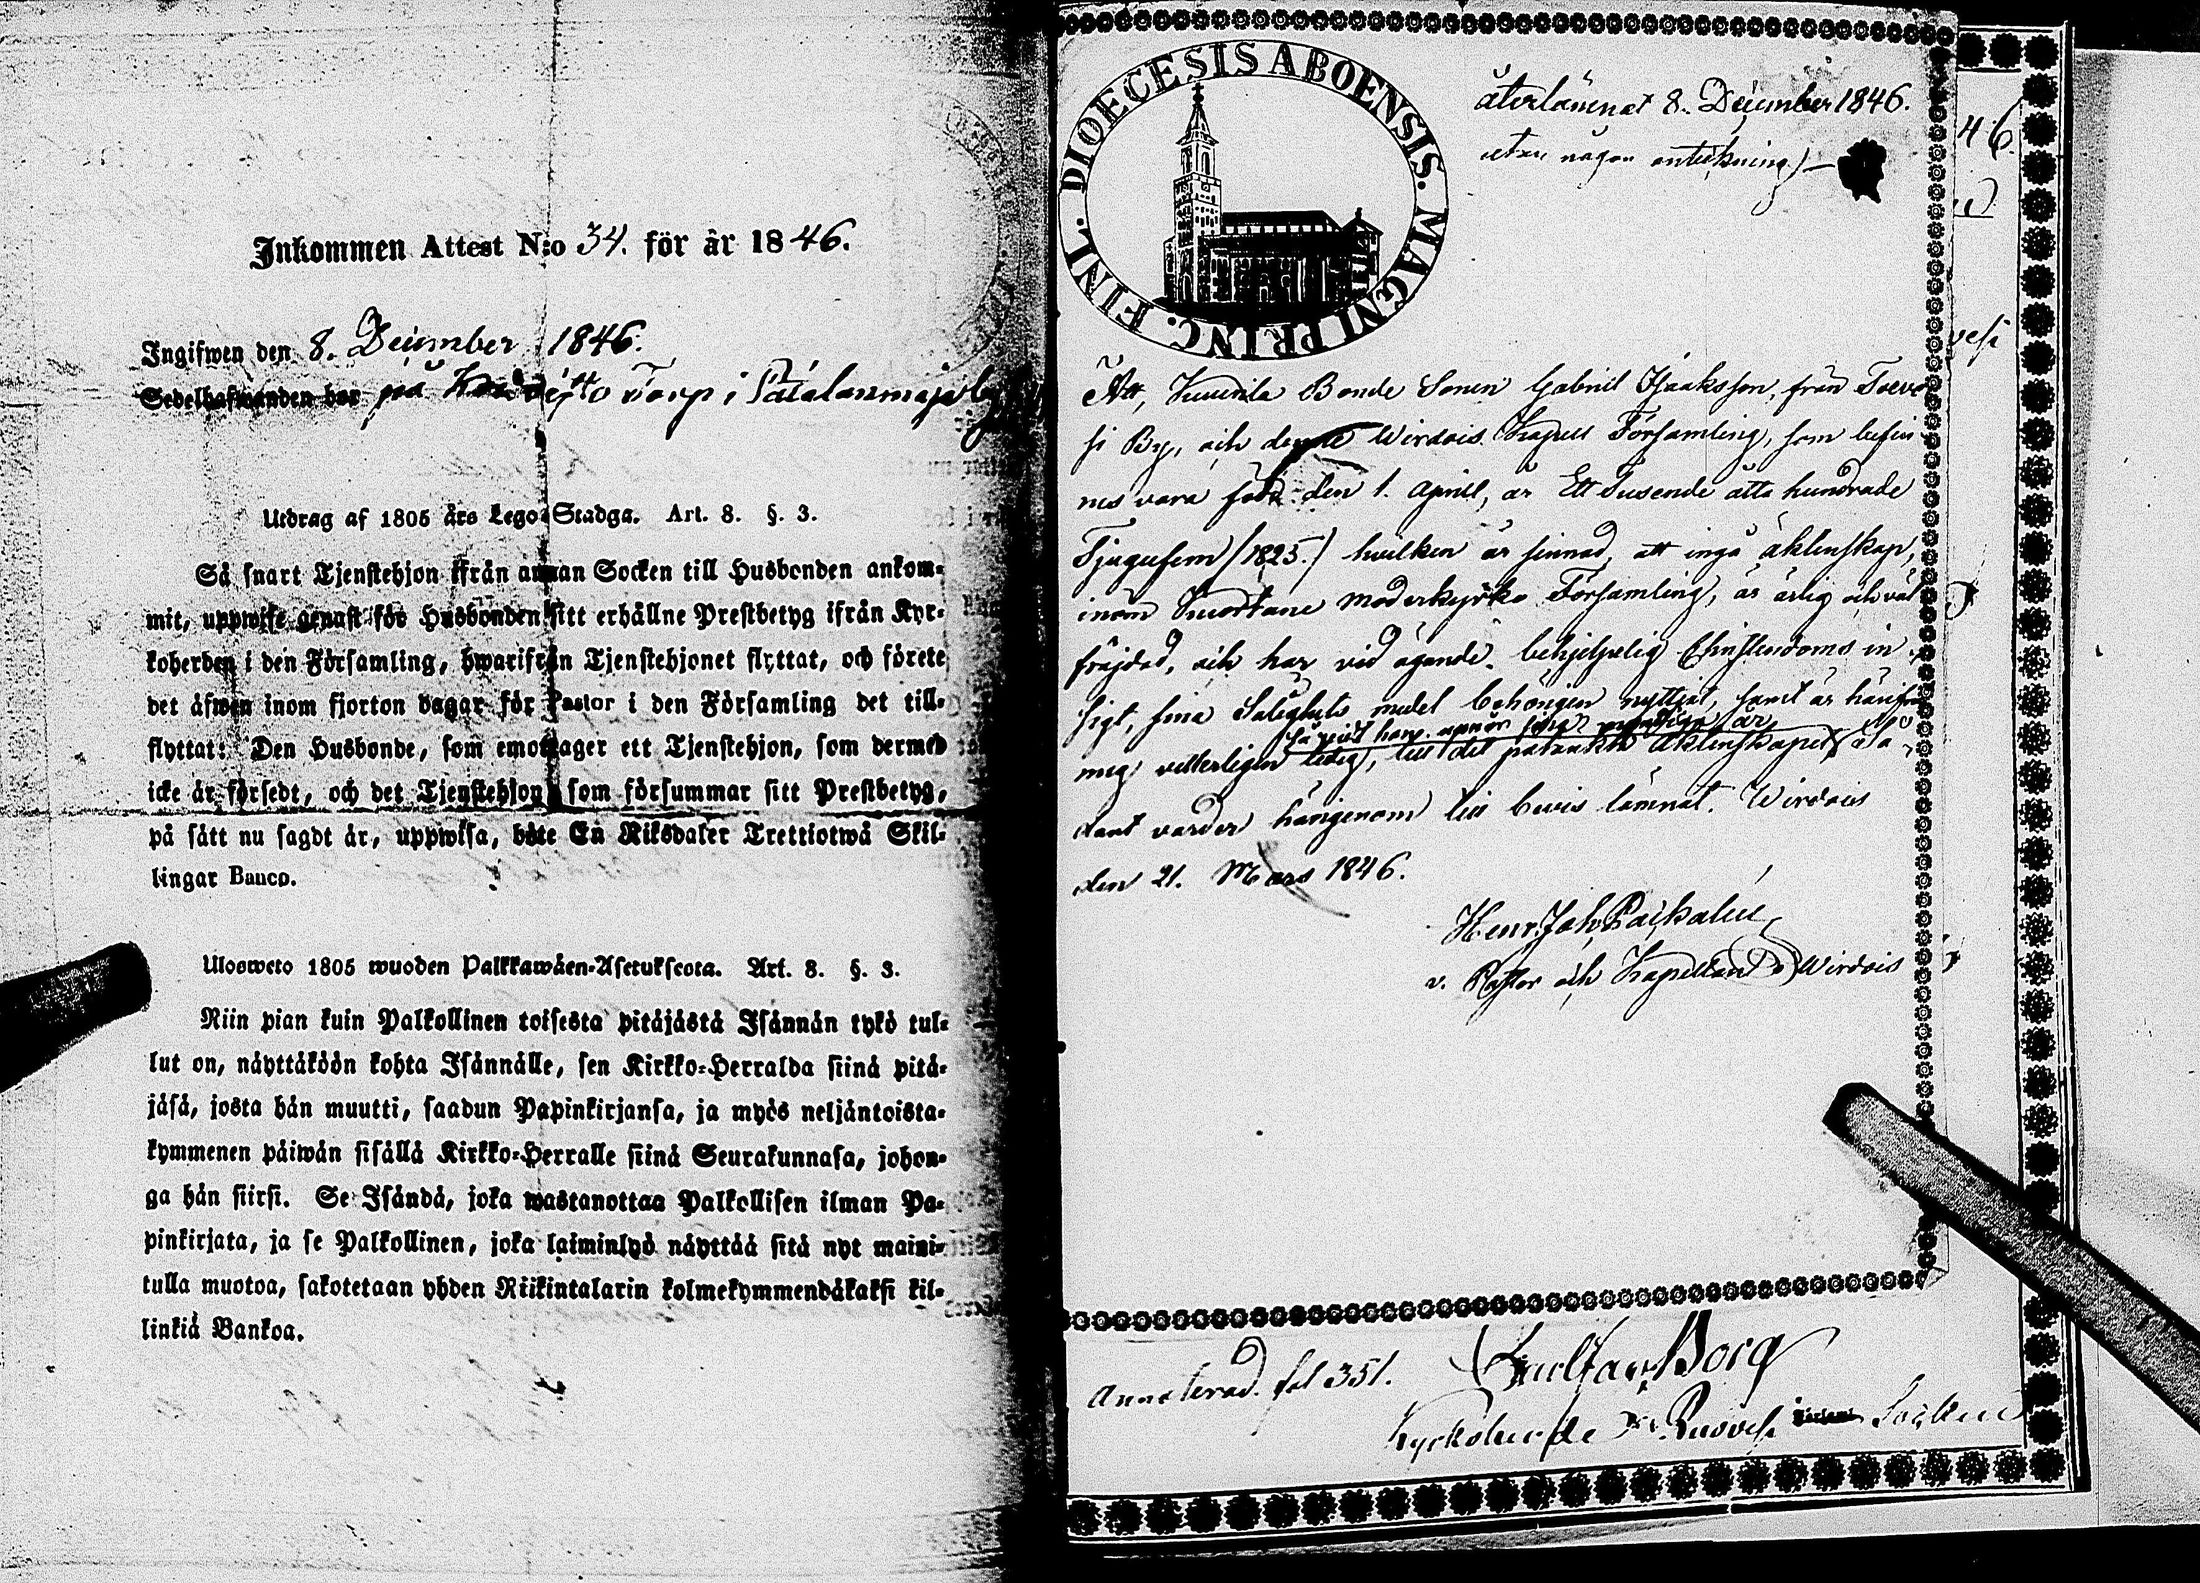 Inkommen Attest N:o 34. för år 1846.
Ingifwen den 8. December 1846.
Sedelhafwanden bor på torp i
Utdrag af 1805 års Lego-Stadga. Art. 8. §. 3.
Så snart Tjenstehjon ifrån annan Socken till Husbonden ankom-
mit, uppwise genast för Husbonden sitt erhållne Prestbetyg ifrån Kyr-
koherden i den Församling, hwarifrån Tjenstehjonet flyttat, och förete
det äfwen inom fjorton dagar för Pastor i den Församling det till-
flyttat. Den Husbonde, som emottager ett Tjenstehjon, som dermed
icke är försedt, och det Tjenstehjon, som försummar sitt Prestbetyg,
på sätt nu sagdt är, uppwisa, böte En Riksdaler Trettiotwå Skil-
lingar Banco.
Ulosweto 1805 wuoden Palkkawäen-Asetuksesta. Art. 8. §. 3.
Niin pian kuin Palkollinen toisesta pitäjästä Isännän tykö tul-
lut on, näyttäköön kohta Isännälle, sen Kirkko-Herralda siinä pitä-
jäsä, josta hän muutti, saadun Papinkirjansa, ja myös neljäntoista-
kymmenen päiwän sisällä Kirkko-Herralle siinä Seurakunnasa, johon-
ga hän siirsi. Se Isändä, joka wastanottaa Palkollisen ilman Pa-
pinkirjata, ja se Palkollinen, joka laiminlyö näyttää sitä nyt maini-
tulla muotoa, sakotetaan yhden Riikintalarin kolmekymmendäkaksi kil-
linkiä Bankoa.
DIOECESIS ABOENSIS. MAGNI PRINC. FINL.
återlämnat 8. December 1846.
utan någon anteckning)
Att, Bonde Sonen Gabriel Isaaksson, från Toeve
si By, och Wirdois Kapell Församling, som befin
nes vara född den 1. April, år Ett Tusende åtta hundrade
Tjugufem (1825.) hvilken är sinnad, att ingå äktenskap,
inom Kuortane moderkyrko Församling, är ärlig och väl
fräjdad, och har vid ägande behjelpelig Christendoms in
sigt, sina Salighets medel behörigen nyttjat, samt är härifrån
så vidt han
mig vetterligen ledig, till det påtänkta äktenskapet; Så
dant varder härigenom till bevis lämnat. Wirdois
den 21. Mars 1846.
Henr. Joh.
v. Pastor och Kapellan i Wirdois
Annoterad. fol 351.
Borg
Kyrkoherde i Ruovesi Socken
46.
vesi